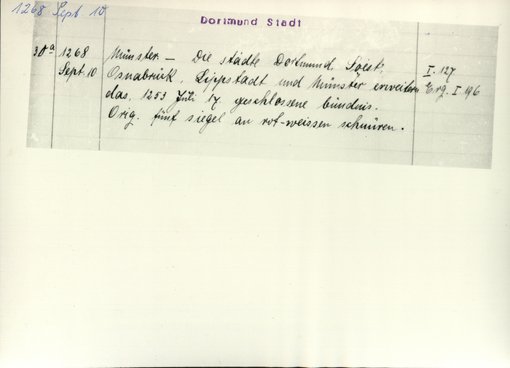 1268 Sept 10
Dortmund Stadt
30a 1268 Münster. — Die städte Dortmund, Soest, I. 127
Sept. 10 Osnabrück, Lippstadt und Münster erweitern Erg. I 196
das, 1253 Juli 17, geschlossene bündnis.
Orig. fünf siegel an rot-weissen schnüren.